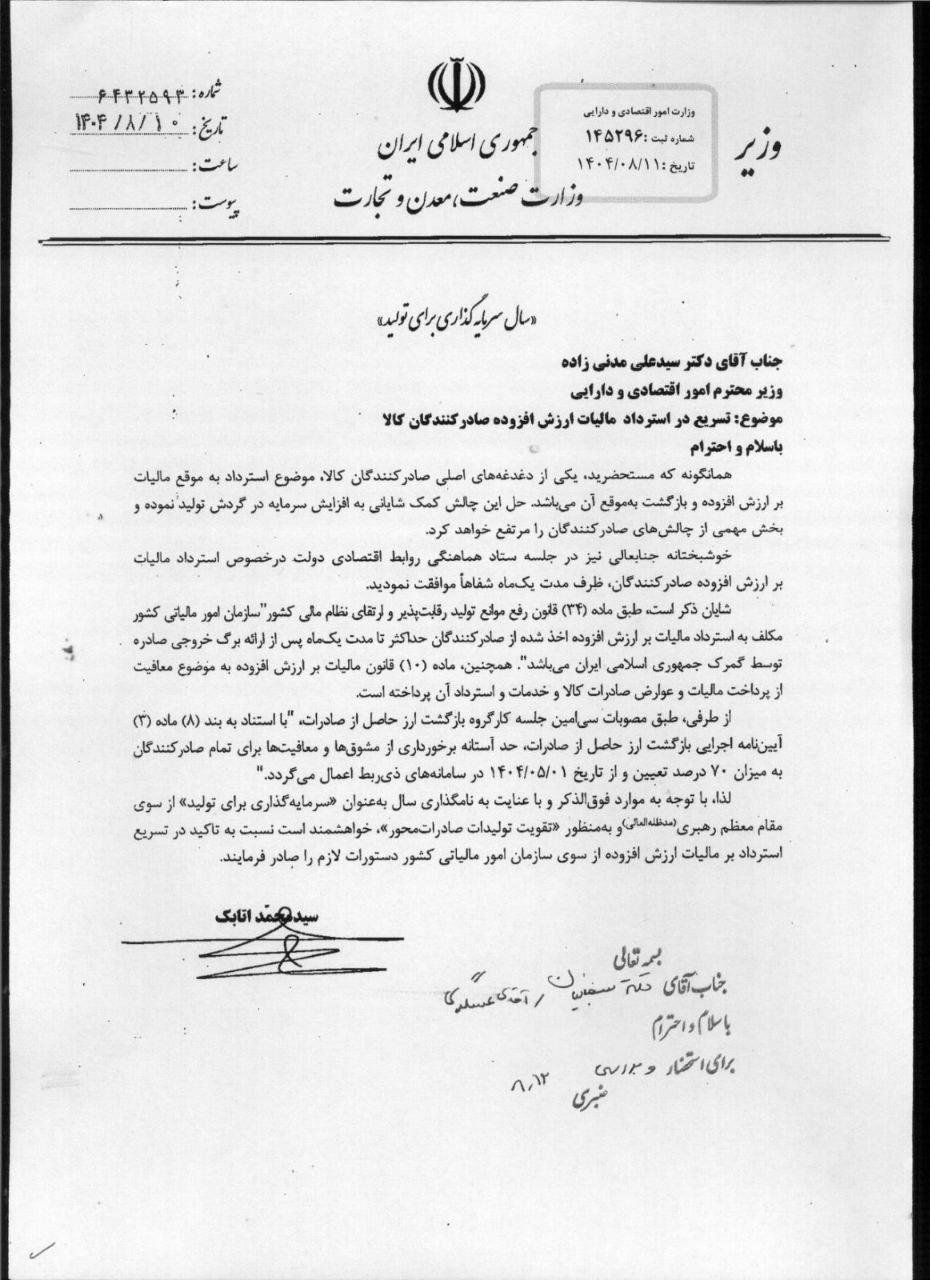 شماره: ۶۴۳۲۵۹۳
تاریخ: ۱۴۰۴/۸/۱۰
ساعت:
پیوست:
جمهوری اسلامی ایران
وزارت صنعت، معدن و تجارت
وزارت امور اقتصادی و دارایی
شماره ثبت: ۱۴۵۲۹۶
تاریخ: ۱۴۰۴/۰۸/۱۱
وزیر
«سال سرمایه گذاری برای تولید»
جناب آقای دکتر سیدعلی مدنی زاده
وزیر محترم امور اقتصادی و دارایی
موضوع: تسریع در استرداد مالیات ارزش افزوده صادرکنندگان کالا
باسلام و احترام
همانگونه که مستحضرید، یکی از دغدغه‌های اصلی صادرکنندگان کالا، موضوع استرداد به موقع مالیات
بر ارزش افزوده و بازگشت به‌موقع آن می‌باشد. حل این چالش کمک شایانی به افزایش سرمایه در گردش تولید نموده و
بخش مهمی از چالش‌های صادرکنندگان را مرتفع خواهد کرد.
خوشبختانه جنابعالی نیز در جلسه ستاد هماهنگی روابط اقتصادی دولت درخصوص استرداد مالیات
بر ارزش افزوده صادرکنندگان، ظرف مدت یک‌ماه شفاهاً موافقت نمودید.
شایان ذکر است، طبق ماده (۳۴) قانون رفع موانع تولید رقابت‌پذیر و ارتقای نظام مالی کشور"سازمان امور مالیاتی کشور
مکلف به استرداد مالیات بر ارزش افزوده اخذ شده از صادرکنندگان حداکثر تا مدت یک‌ماه پس از ارائه برگ خروجی صادره
توسط گمرک جمهوری اسلامی ایران می‌باشد". همچنین، ماده (۱۰) قانون مالیات بر ارزش افزوده به موضوع معافیت
از پرداخت مالیات و عوارض صادرات کالا و خدمات و استرداد آن پرداخته است.
از طرفی، طبق مصوبات سی‌امین جلسه کارگروه بازگشت ارز حاصل از صادرات، "با استناد به بند (۸) ماده (۳)
آیین‌نامه اجرایی بازگشت ارز حاصل از صادرات، حد آستانه برخورداری از مشوق‌ها و معافیت‌ها برای تمام صادرکنندگان
به میزان ۷۰ درصد تعیین و از تاریخ ۱۴۰۴/۰۵/۰۱ در سامانه‌های ذی‌ربط اعمال می‌گردد."
لذا، با توجه به موارد فوق‌الذکر و با عنایت به نامگذاری سال به‌عنوان «سرمایه‌گذاری برای تولید» از سوی
مقام معظم رهبری(مدظله‌العالی)و به‌منظور «تقویت تولیدات صادرات‌محور»، خواهشمند است نسبت به تاکید در تسریع
استرداد بر مالیات ارزش افزوده از سوی سازمان امور مالیاتی کشور دستورات لازم را صادر فرمایند.
سیدمحمد اتابک
بسمه تعالی
جناب آقای دکتر
باسلام و احترام
برای استحضار و بررسی
۸/۱۲